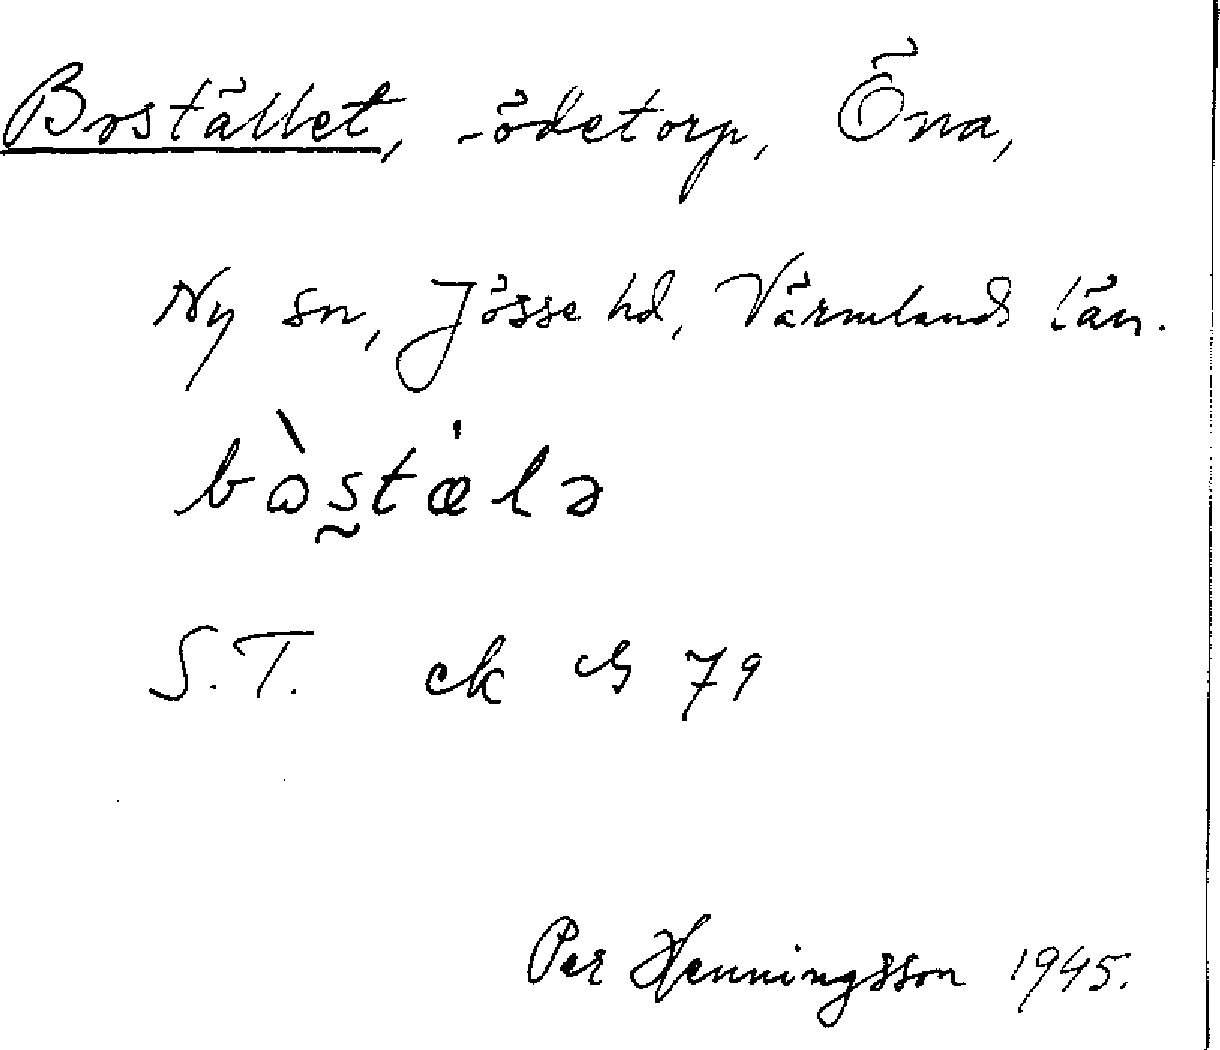 Bostället, -ödetorp, Öna,
Ny sn, Jösse hd, Värmlands län.
bὼs̰tæ̇lə
S.T. ek G 79
Per Henningsson 1945.